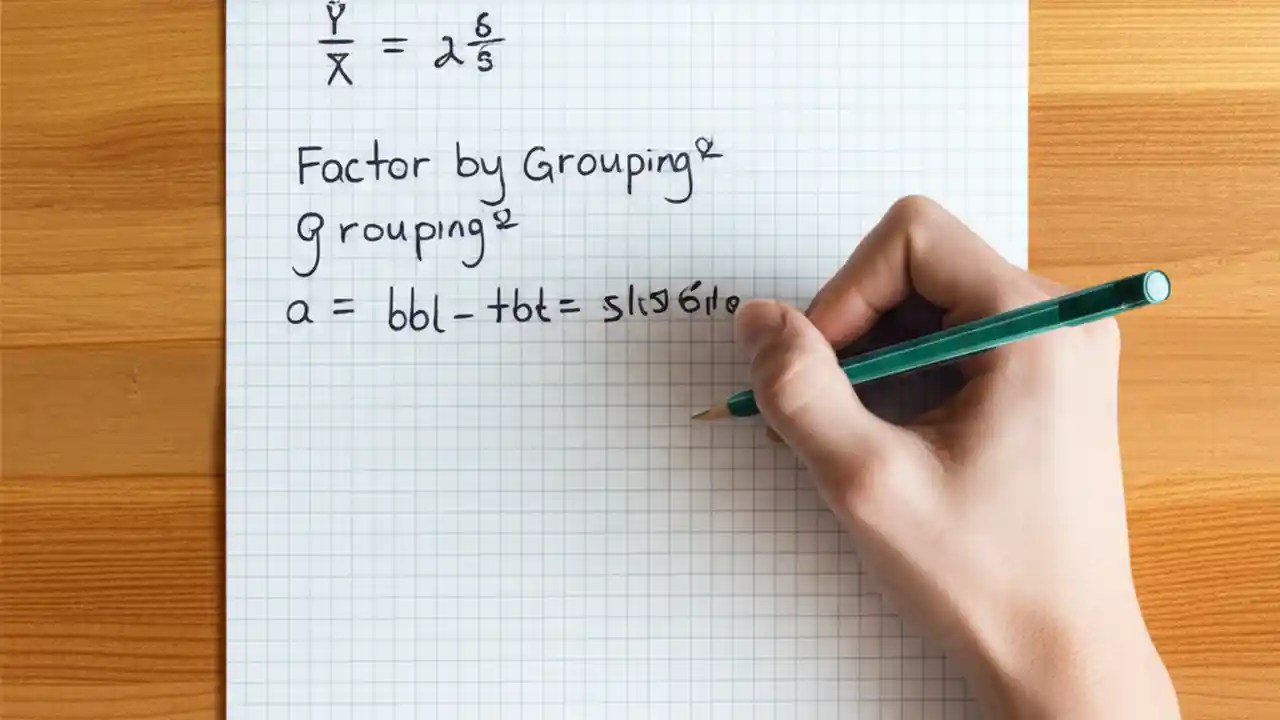 Y/X = 2 6/5
Factor by Grouping²
Grouping²
a = bbl - tbt =